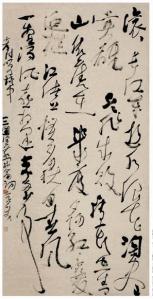 滚滚长江东逝水浪花淘尽
英雄是非成败转头空青
山依旧在几度夕阳红白发
渔樵江渚上惯看秋月春风
一壶浊酒喜相逢古今多少事
都付笑谈中
三国演义开篇词